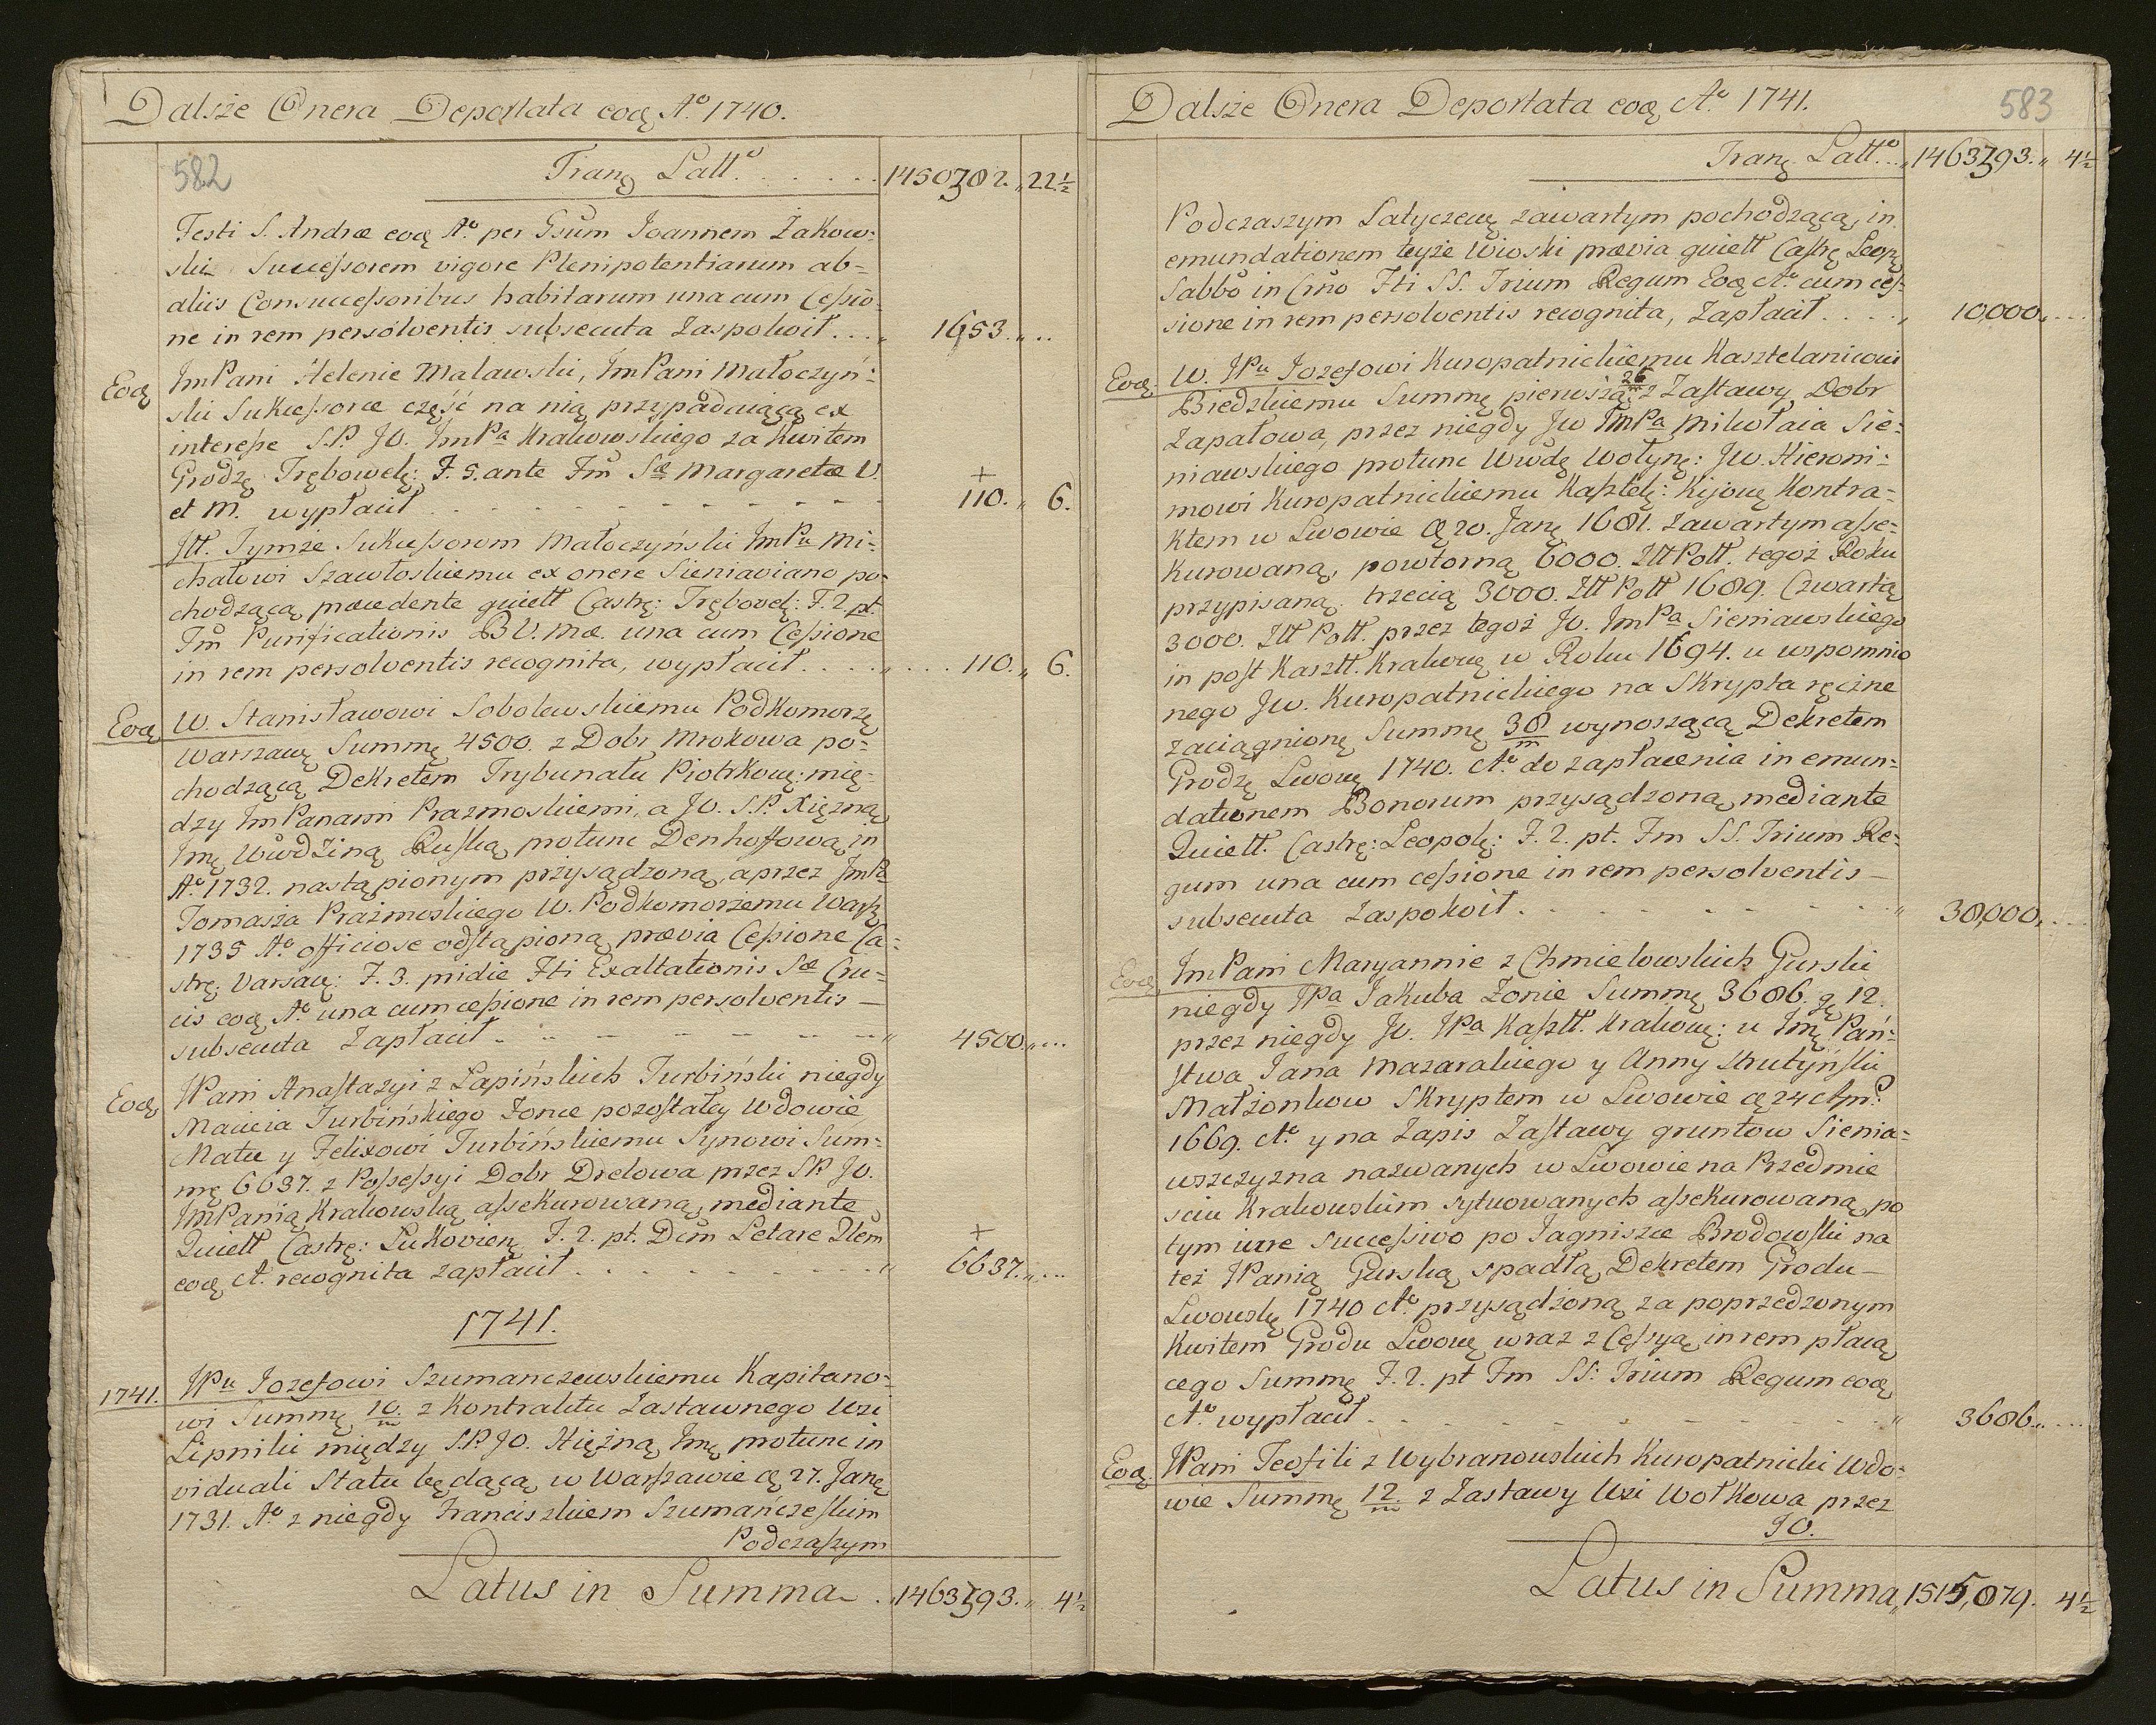 Dalsże Onera Deportata eoq̨ Aᵒ 1740.
582
Tranꝫ Latt.ᵒ . . . . . 1450,582. „ 22½
Festi S. Andræ eoq̨ Aᵒ per Gsum Joannem Żakow-
ski Successorem vigore Plenipotentiarum ab-
aliis Consuccessoribus habitarum una cum Cessio-
ne in rem persolventis subsecuta Zaspokoił . . . „ 1653. „ . .
Eoq̨ ImPani Helenie Malawski, ImPani Małoczyń-
ski Sukcessorce część na nią przypadaiącą ex
interesse S.P. JO. ImPa Krakowskiego za Kwitem
Grodz̨ Trębowel̨: F. 5. ante Fm Sæ Margaretæ V.
et M. wypłacił . . . . . . . . + 110. „ 6.
Itt. Tymże Sukcessorom Małoczyński ImPu Mi-
chałowi Szawłoskiemu ex onere Sieniaviano po-
chodzącą præcedente quiett Castr̨: Trębovel̨: F. 2. pt.
Fm Purificationis B V. Mæ. una cum Cessione
in rem persolventis recognita, wypłacił . . . . „ . . . 110. „ 6.
Eoq̨ W. Stanisławowi Sobolewskiemu Podkomorz̨
Warszaw̨ Summę 4500. z Dobr Mrokowa po-
chodzącą Dekretem Trybunału Piotrkow̨: mię-
dzy ImPanami Prazmoskiemi, a JO. S.P. Xięzną
Imc̨ Wwdziną Ruską protunc Denhoffową, in
Aᵒ 1732. nastąpionym przysądzoną, a przez ImPa
Tomasza Prażmoskiego W. Podkomorzemu Warsz̨
1735 Aᵒ officiose odstąpioną prævia Cessione Ca-
str̨: Varsav̨: F. 3. pridie Fti Exaltationis Sæ Cru-
cis eoq̨ Aᵒ una cum cessione in rem persolventis –
subsecuta Zapłacił . . . . . . . „ 4500. „ . . .
Eoq̨ JPani Anastazyi z Łapińskich Turbiński niegdy
Macieia Turbińskiego Zonie pozostałey Wdowie,
Matce y Felixowi Turbińskiemu Synowi Sum-
mę 6637. z Possessyi Dobr Drelowa przez S.P. JO.
ImPanią Krakowską assekurowaną, mediante
Quiett Castr̨: Łukovien̨ F. 2. pt. Dūm Letare Qlem +
eoq̨ A. recognita zapłacił . . . . . . „ 6637. „ . . .
1741.
1741. JPu Jozefowi Szumanczewskiemu Kapitano-
wi Summę 10/m z Kontraktu Zastawnego Wsi
Lipniki między S.P. JO. Xiężną Imc̨ protunc in
viduali Statu będącą w Warszawie q̨ 27. Jan̨
1731. Aᵒ z niegdy Franciszkiem Szumańczeskim
Podczaszym
Latus in Summa . „ 1463,593. „ 4½
Dalsże Onera Deportata eoq̨ Aᵒ 1741.
583
Tranꝫ Latt.ᵒ . . „ 1463,593. „ 4½
Podczaszym Latyczew̨ zawartym pochodzącą, in
emundationem teyże Wioski prævia quiett Castr̨ Leop̨
Sabbo in Crno Fti SS. Trium Regum Eoq̨ Aᵒ cum ces-
sione in rem persolventis recognita, Zapłacił . . . . „ 10,000. „ . . .
Eoq̨: W. JPu Jozefowi Kuropatnickiemu Kasztelanicowi
Biedzkiemu Summę pierwszą 26/m z Zastawy Dobr
Zapałowa, przez niegdy Jw ImPa Mikołaia Sie-
niawskiego protunc Wwdę Wołyn̨: Jw. Hieroni-
mowi Kuropatnickiemu Kasztel̨: Kijow̨ Kontra-
ktem w Lwowie q̨ 20. Jan̨ 1681. zawartym asse-
kurowaną, powtorną 6000. ZłłPoll. tegoż Roku
przypisaną. trzecią 3000. Złł Poll 1689. Czwartą
3000. Złł Poll. przez tegoż Jo. ImPa Sieniawskiego
in post Kasztl. Krakow̨ w Roku 1694. u wspomnio
nego Jw. Kuropatnickiego na Skrypta ręczne
zaciągnionę Summę 38/m wynoszącą Dekretem
Grodz̨ Lwow̨ 1740. Aᵒ do zapłacenia in emun-
dationem Bonorum przysądzoną, mediante
Quiett. Castr̨: Leopol̨: F. 2. pt. Fm SS. Trium Re-
gum una cum cessione in rem persolventis –
subsecuta Zaspokoił . . . . . . . „ 38,000. „ . . .
Eoq̨ ImPani Maryannie z Chmielowskich Gurski
niegdy JPa Jakuba Zonie Summę 3686. g̨ 12.
przez niegdy Jo. JPa Kasztl. Krakow̨: u Imc̨ Pań-
stwa Jana Mazarakiego y Anny Strutyński
Małżonkow Skryptem w Lwowie q̨ 24 Apr.
1669. Aᵒ y na Zapis Zastawy gruntow Sienia-
wszczyzna nazwanych w Lwowie na Przedmie
sciu Krakowskim sytuowanych assekurowaną, po
tym iure successivo po Jagniszce Brodowski na
też JPanią Gurską spadłą, Dekretem Grodu –
Lwowsk̨ 1740 Aᵒ przysądżoną, za poprzedzonym
Kwitem Grodu Lwow̨ wraz z Cessyą, in rem płacą
cego Summę F. 2. pt Fm SS: Trium Regum eoq̨
Aᵒ wypłacił . . . . . . . . . „ 3686. „ . . .
Eoq̨. JPani Teofili z Wybranowskich Kuropatnicki Wdo-
wie Summę 12/m z Zastawy Wsi Wołkowa przez
JO.
Latus in Summa „ 1515,879. 4½